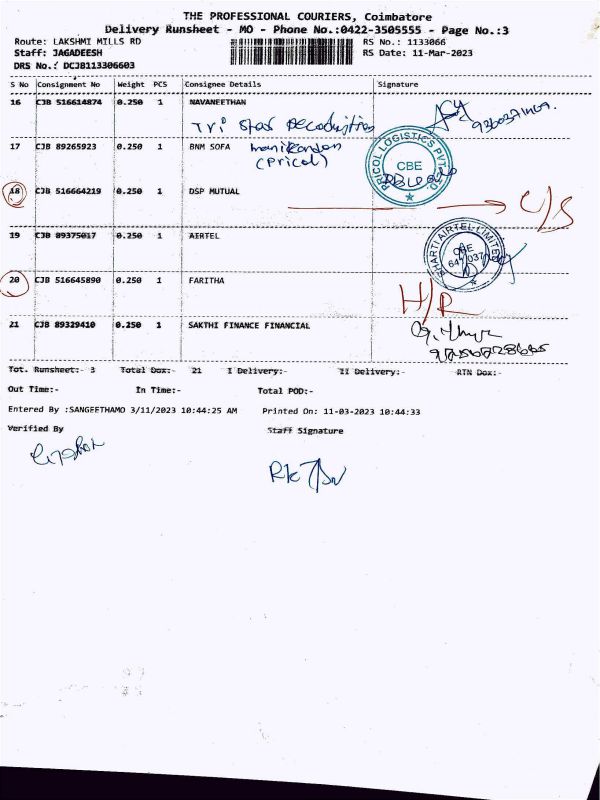 THE PROFESSIONAL COURIERS, Coimbatore
Delivery Runsheet - MO - Phone No.:0422-3505555 - Page No.:3
Route: LAKSHMI MILLS RD RS No.: 1133066
Staff: JAGADEESH RS Date: 11-Mar-2023
DRS No.: DCJB113306603
S No Consignment No Weight PCS Consignee Details Signature
16 CJB 516614874 0.250 1 NAVANEETHAN
Tri Star
17 CJB 89265923 0.250 1 BNM SOFA manikandan
(Pricol)
PRICOL LOGISTICS PVT
CBE
18 CJB 516664219 0.250 1 DSP MUTUAL C/S
19 CJB 89375017 0.250 1 AIRTEL
BHARTI AIRTEL LIMITED
20 CJB 516645890 0.250 1 FARITHA H/R
21 CJB 89329410 0.250 1 SAKTHI FINANCE FINANCIAL
Tot. Runsheet:- 3 Total Dox:- 21 I Delivery:- II Delivery:- RTN Dox:-
Out Time:- In Time:- Total POD:-
Entered By :SANGEETHAMO 3/11/2023 10:44:25 AM Printed On: 11-03-2023 10:44:33
Verified By Staff Signature